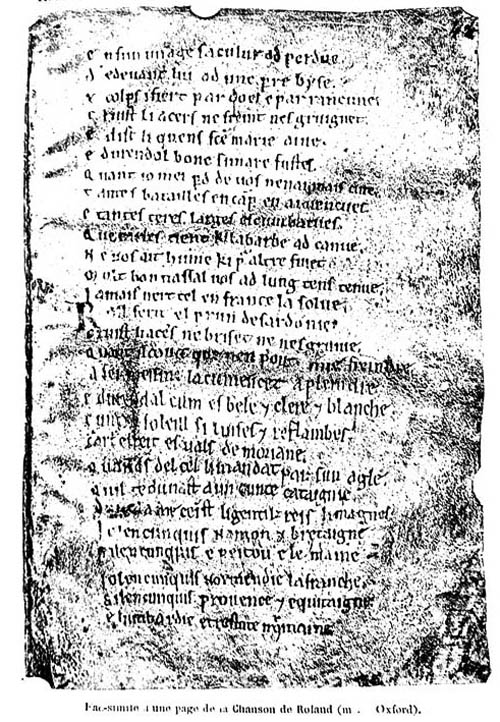 e n sun uisage sa culur ad perdue.
d edeuant lui ad une perre byse.
x colps i fiert par doel e par rancune.
c ruist li acers ne freint nesgruignet.
e dist li quens sce marie aiue.
e durendal bone si mare fustes.
q uant io mei pd de uos nen ai mais cure
t antes batailles en cap en ai uencues
e tantes teres larges escumbatues.
q ue carles tient ki la barbe ad canue.
n e uos ait hume ki p altre fuiet
m ult bon uassal uos ad lung tens tenue.
J amais nert tel en france la solue
R ferit el perrun de sardonie
c ruist li acers ne briset ne nesgrunie.
q uant il co que nen pout mie freindre
a sei meisme la cumencet a pleindre
e durendal cum es bele ⁊ clere ⁊ blanche
soleill si luises ⁊ reflambes.
carl esteit es uals de moriane.
q uant ds del cel li mandat par sun agle
q uil te dunast a un cunte cataignie
la me ceist li gentilz reis li magnes
J o len cunquis Namon ⁊ bretaigne
si len cunquis e peitou e le maine
J o len cunquis Normendie la franche
si len cunquis prouence ⁊ equitaigne
e lumbardie e trestute romaine
Fac-simile d'une page de la Chanson de Roland (m. Oxford).